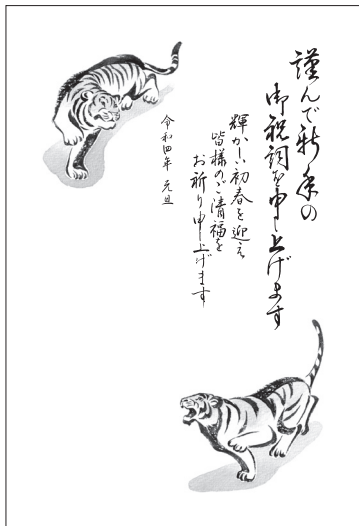 謹んで新年の
御祝詞を申し上げます
輝かしい初春を迎え
皆様のご清福を
お祈り申し上げます
令和四年 元旦